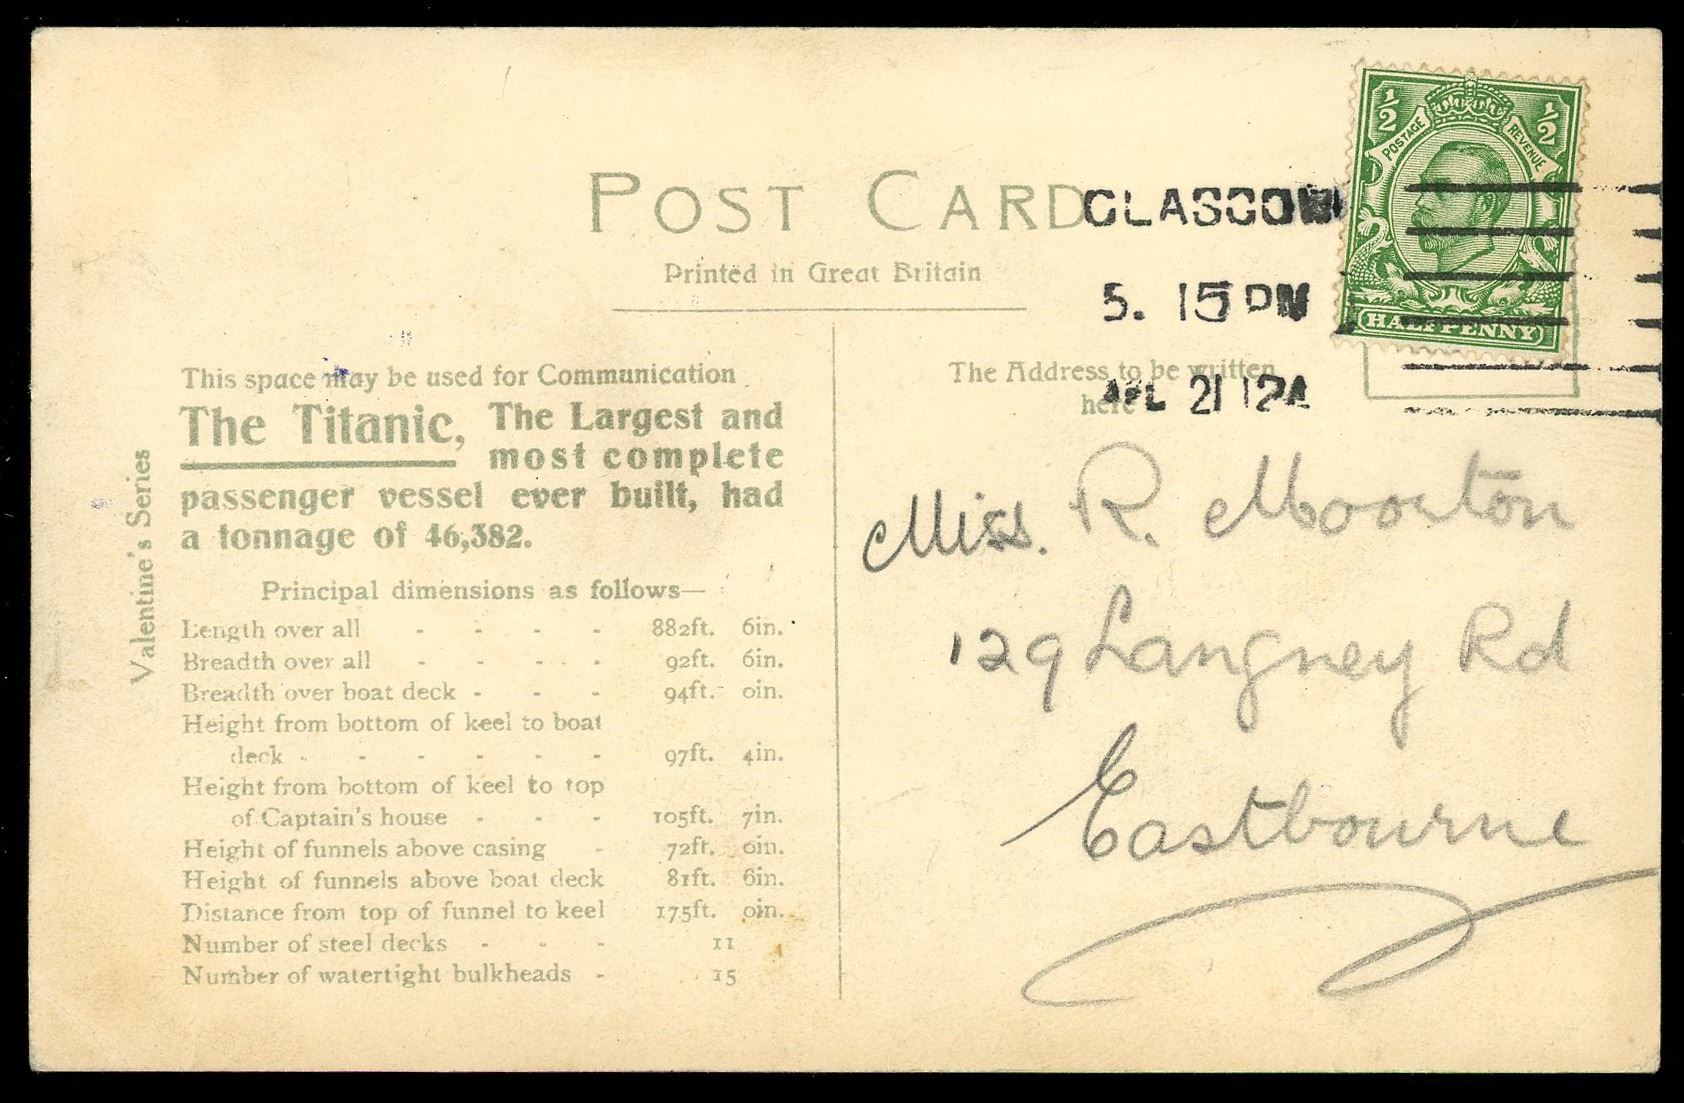 ½ ½
POSTAGE REVENUE
HALFPENNY
POST CARD
Printed in Great Britain
GLASGOW
5. 15 PM
APL 21 12
This space may be used for Communication
The Titanic, The Largest and
most complete
passenger vessel ever built, had
a tonnage of 46,382.
Principal dimensions as follows—
Length over all - - - - 882ft. 6in.
Breadth over all - - - - 92ft. 6in.
Breadth over boat deck - - - 94ft. 0in.
Height from bottom of keel to boat
deck - - - - - - 97ft. 4in.
Height from bottom of keel to top
of Captain's house - - - 105ft. 7in.
Height of funnels above casing - 72ft. 0in.
Height of funnels above boat deck 81ft. 6in.
Distance from top of funnel to keel 175ft. 0in.
Number of steel decks - - - 11
Number of watertight bulkheads - 15
Valentine's Series
The Address to be written
here
Miss. R.
129 Langney Rd
Eastbourne